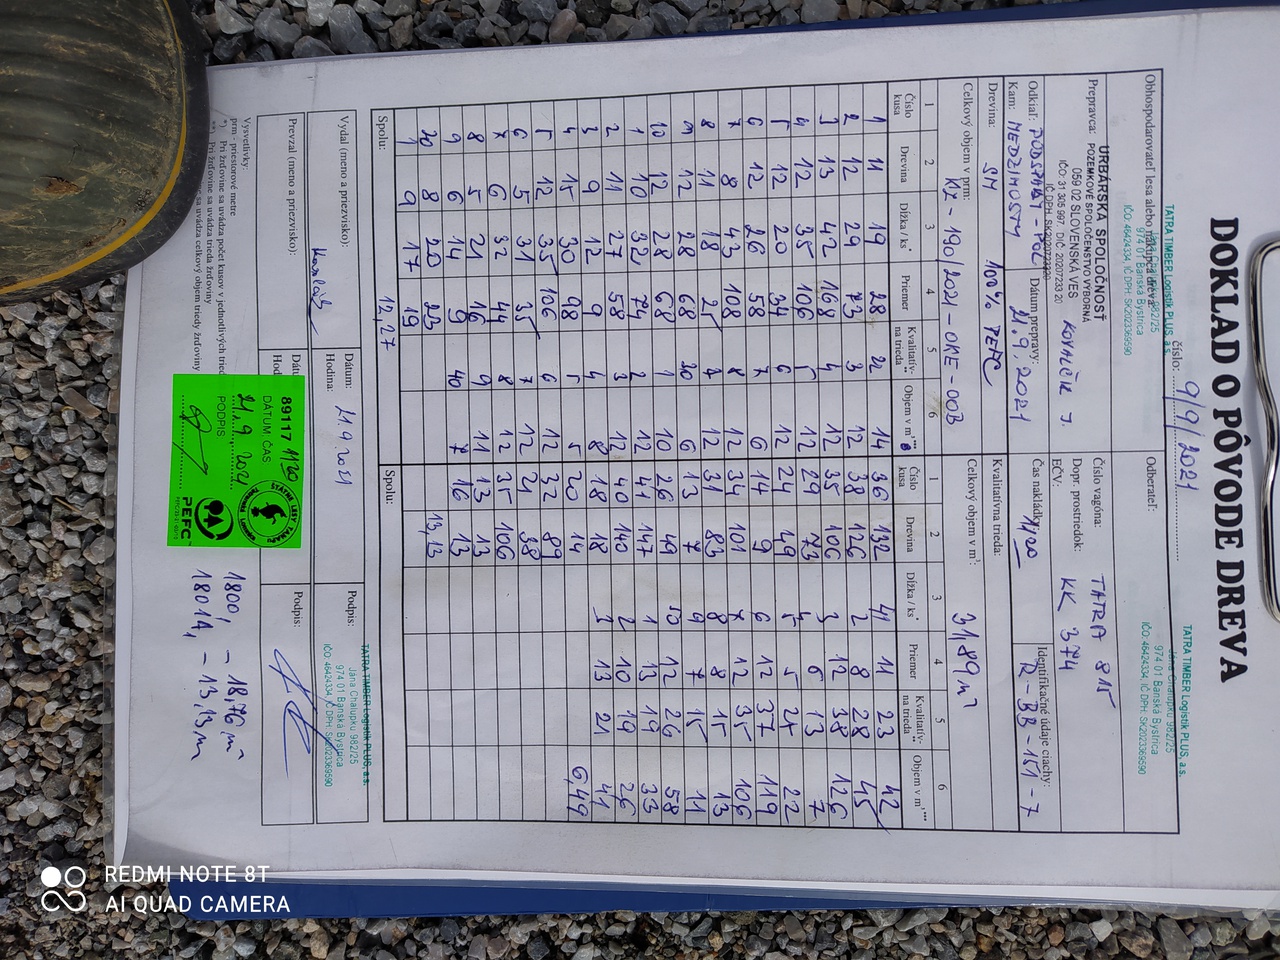 DOKLAD O PÔVODE DREVA
číslo: 9/9/2021
Obhospodarovateľ lesa alebo
TATRA TIMBER Logistik PLUS, a.s.
974 01 Banská Bystrica
IČO: 46424334, IČ DPH: SK2023369590
Odberateľ:
TATRA TIMBER Logistik PLUS, a.s.
Jána Chalupku 982/25
974 01 Banská Bystrica
IČO: 46424334, IČ DPH: SK2023369590
URBÁRSKA SPOLOČNOSŤ
POZEMKOVÉ SPOLOČENSTVO VÝBORNÁ
059 02 SLOVENSKÁ VES
IČO: 31 305 997, DIČ: 20207233 20
Prepravca: KOVALČÍK J.
Číslo vagóna: TATRA 815
Dopr. prostriedok: KK 374
EČV:
Odkiaľ:
Kam: MEDZIMOSTY
Dátum prepravy: 21.9.2021
Čas nakládky: 11,20
Identifikačné údaje ciachy:
R-BB-151-7
Drevina: SM 100% PEFC
Kvalitatívna trieda:
Celkový objem v prm: KZ-190/2021-OKE-OOB
Celkový objem v m³: 31,89 m
1 2 3 4 5 6 1 2 3 4 5 6
Číslo kusa Drevina Dĺžka / ks Priemer Kvalitatív- na trieda Objem v m³ Číslo kusa Drevina Dĺžka / ks Priemer Kvalitatív- na trieda Objem v m³
1 11 19 28 2 14 36 132 41 11 23 42
2 12 29 73 3 12 38 126 2 8 28 45
3 13 42 168 4 12 35 106 3 12 38 126
4 12 35 106 5 12 29 73 4 6 13 7
5 12 20 34 6 12 24 49 5 5 24 22
6 12 26 58 7 6 14 9 6 12 37 119
7 8 43 108 8 12 34 101 7 12 35 106
8 11 18 25 12 31 83 8 8 15 13
9 12 28 68 20 6 13 7 9 7 15 11
10 12 28 68 1 10 26 49 10 12 26 58
1 10 32 74 2 12 41 147 1 13 19 33
2 11 27 58 3 12 40 140 2 10 19 26
3 9 12 9 4 8 18 18 3 13 21 41
4 15 30 98 5 5 20 14 6,49
5 12 35 106 6 12 32 89
6 5 31 35 7 12 21 38
7 6 32 44 8 12 35 106
8 5 21 16 9 11 13 13
9 6 14 9 40 7 16 13
20 8 20 23 13,13
1 9 17 19
Spolu: 12,27 Spolu:
Vydal (meno a priezvisko):
Dátum: 21.9.2021
Hodina:
Podpis:
TATRA TIMBER Logistik PLUS, a.s.
Jána Chalupku 982/25
974 01 Banská Bystrica
IČO: 46424334, IČ DPH: SK2023369590
Prevzal (meno a priezvisko):
Podpis:
89117 11 20
DÁTUM ČAS
21.9 2021
PODPIS
ŠTÁTNE LESY TANAPu
PEFC
Vysvetlivky:
prm - priestorové metre
*) Pri žrďovine sa uvádza počet kusov v jednotlivých
**) Pri žrďovine sa uvádza trieda žrďoviny
sa uvádza celkový objem triedy žrďoviny
1800, - 18,76 m
1801A, - 13,13 m
REDMI NOTE 8T
AI QUAD CAMERA